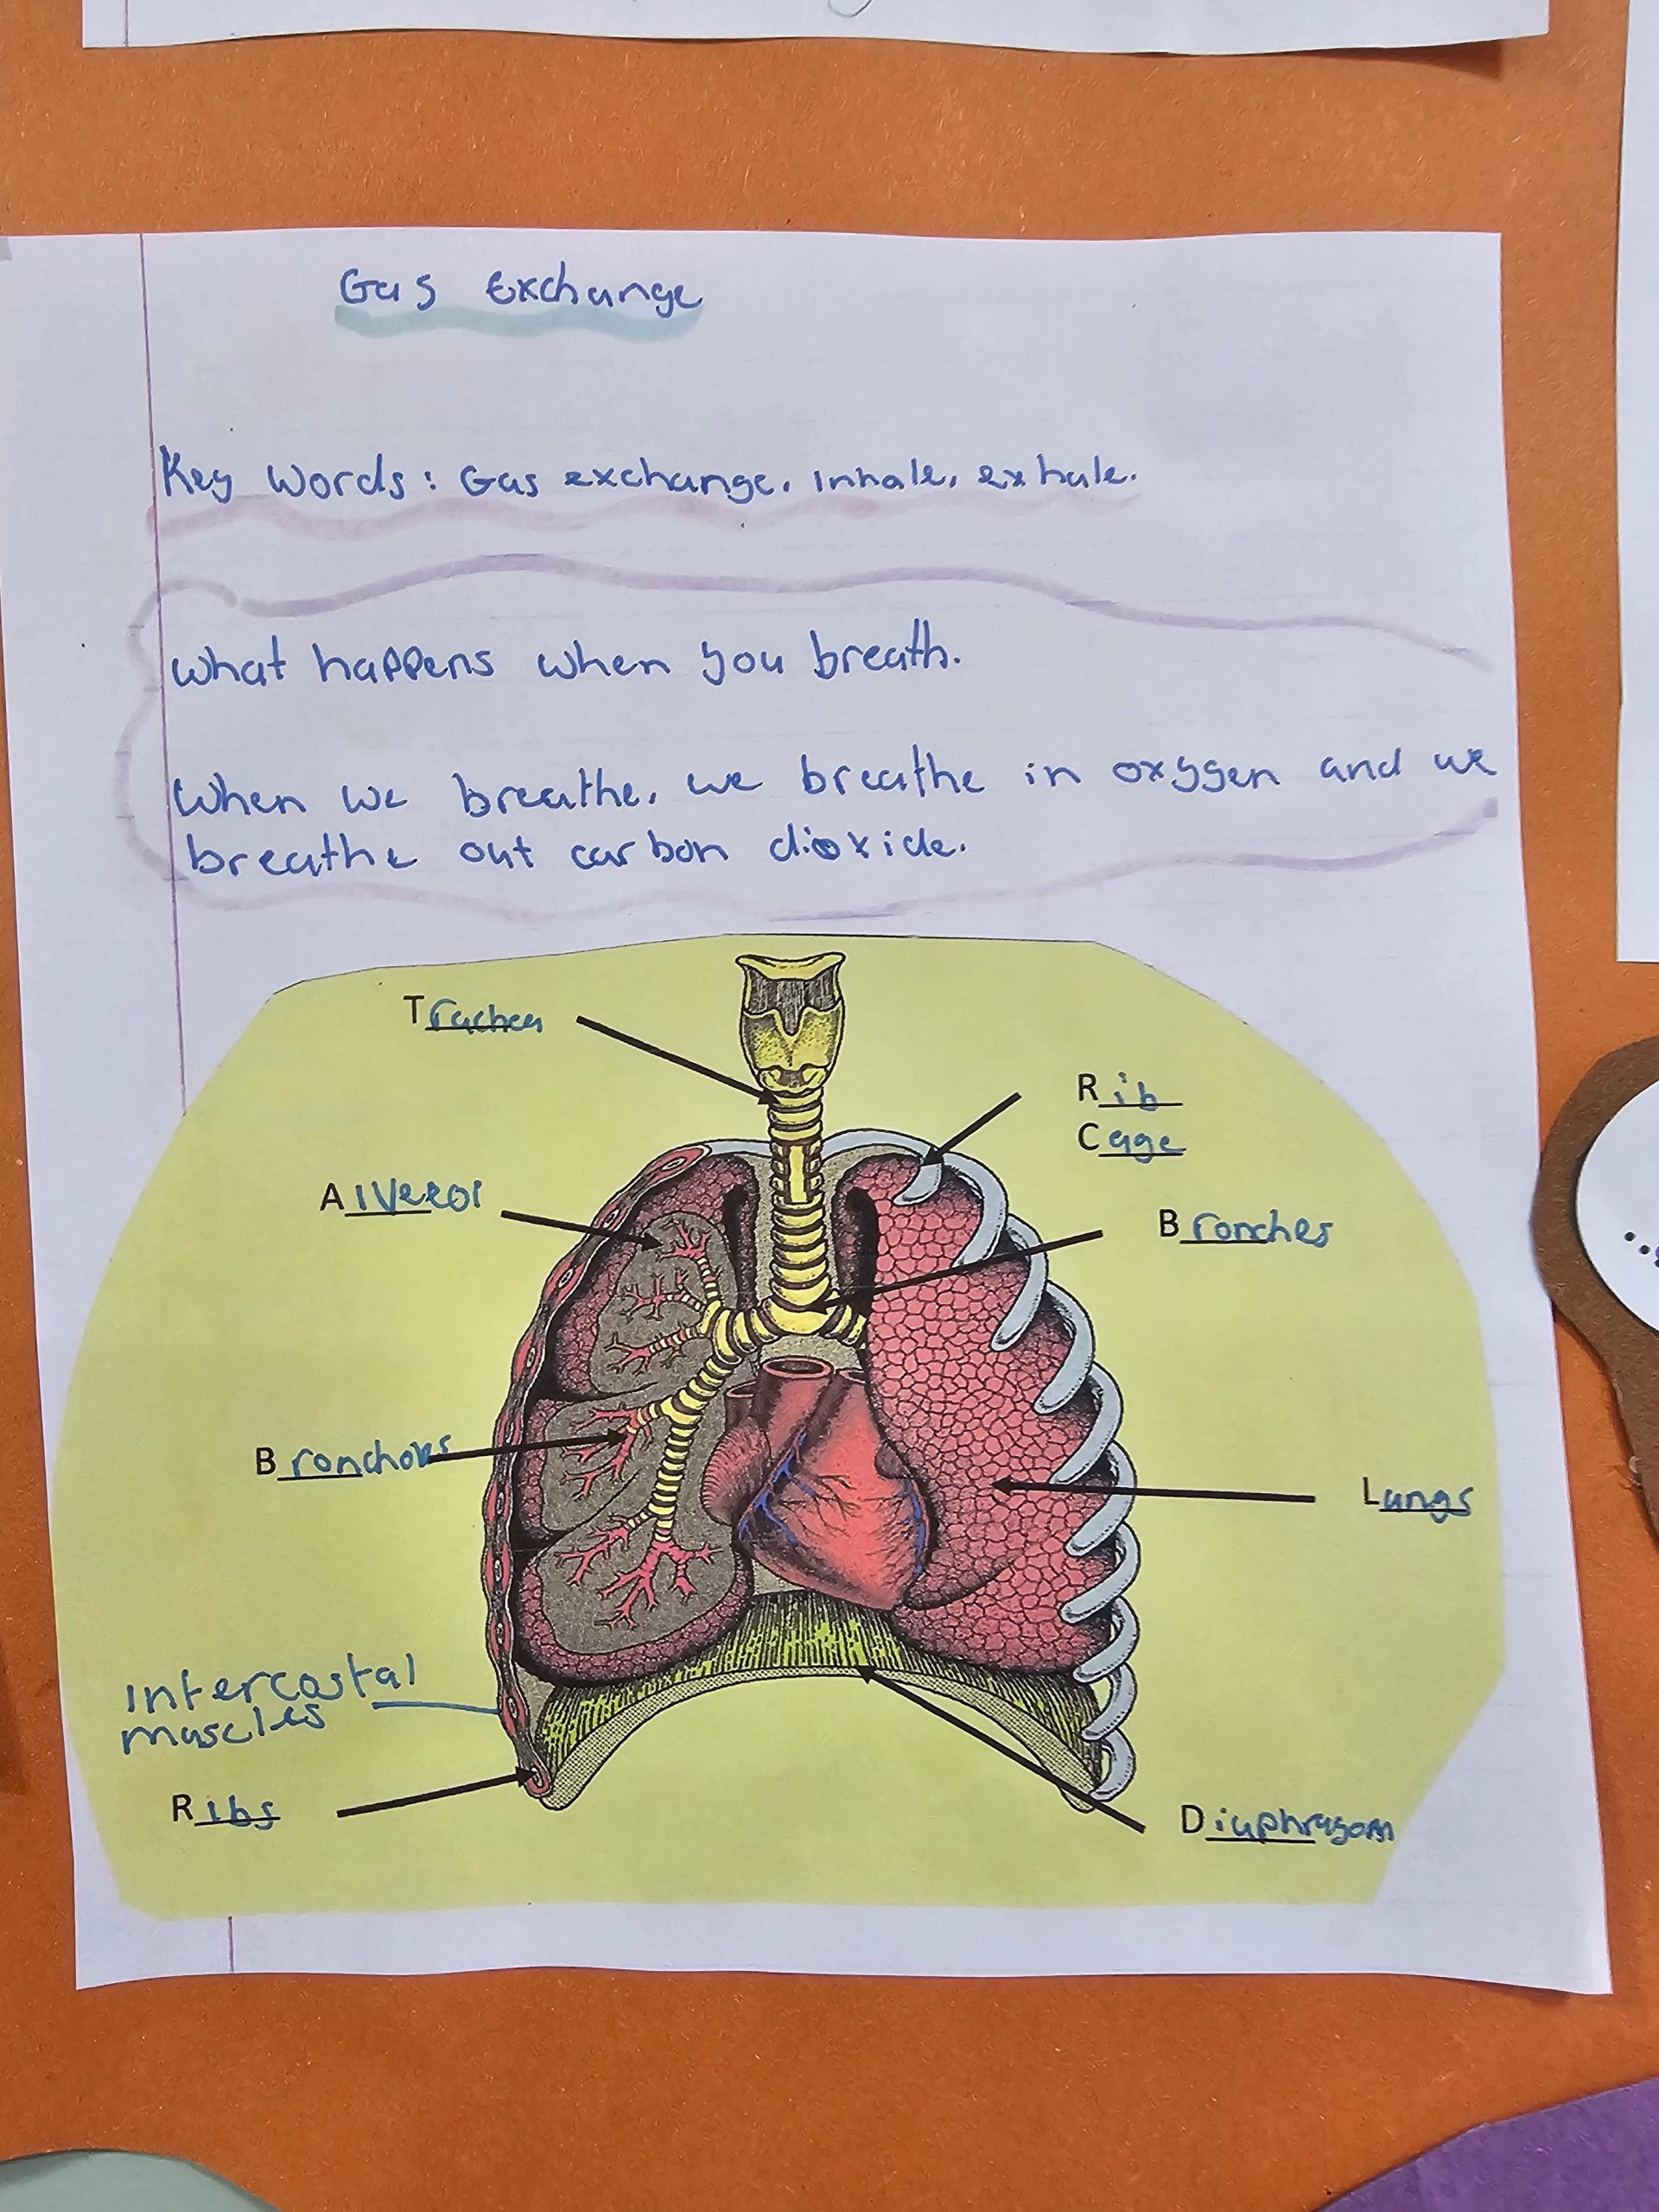 Gas Exchange
Key Words: Gas exchange, inhale, exhale.
What happens when you breath.
When we breathe, we breathe in oxygen and we
breathe out carbon dioxide.
Trachea
Rib
Cage
Alveeoi
Bronches
Lungs
Intercostal
muscles
Ribs
Diaphragom